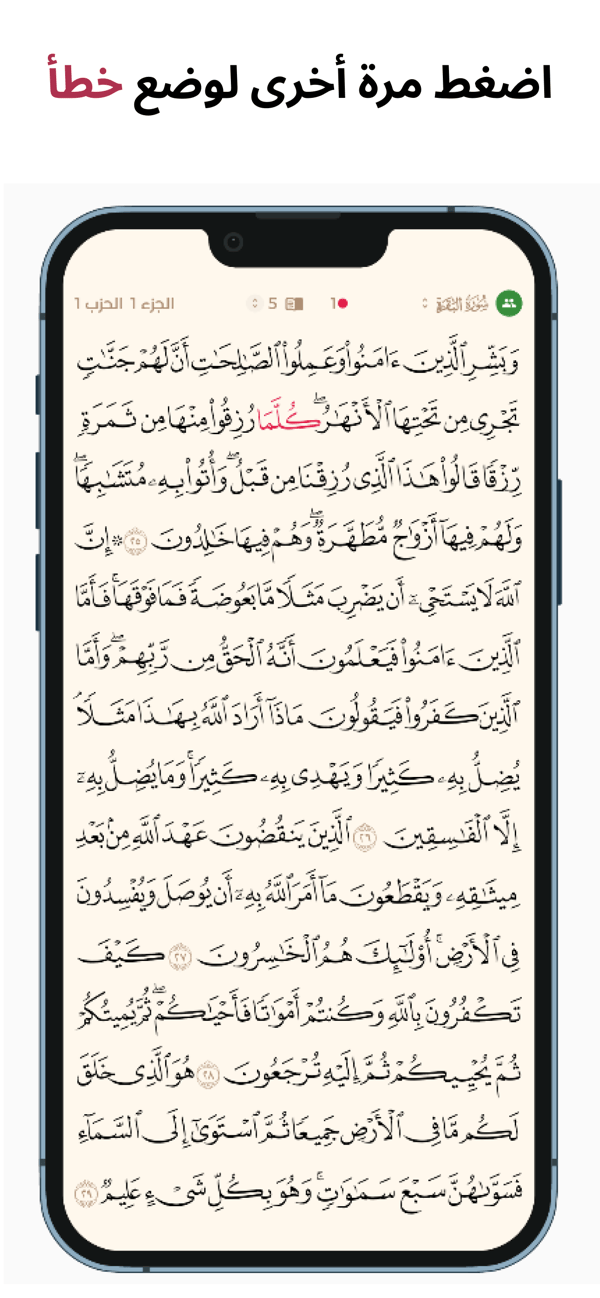 اضغط مرة أخرى لوضع خطأ
سُورَةُ البَقَرَةِ 1 5 الجزء 1 الحزب 1
وَبَشِّرِ ٱلَّذِينَ ءَامَنُواْ وَعَمِلُواْ ٱلصَّٰلِحَٰتِ أَنَّ لَهُمْ جَنَّٰتٖ
تَجۡرِي مِن تَحۡتِهَا ٱلۡأَنۡهَٰرُۖ كُلَّمَا رُزِقُواْ مِنۡهَا مِن ثَمَرَةٖ
رِّزۡقٗا قَالُواْ هَٰذَا ٱلَّذِي رُزِقۡنَا مِن قَبۡلُۖ وَأُتُواْ بِهِۦ مُتَشَٰبِهٗاۖ
وَلَهُمۡ فِيهَآ أَزۡوَٰجٞ مُّطَهَّرَةٞۖ وَهُمۡ فِيهَا خَٰلِدُونَ ٢٥ ۞ إِنَّ
ٱللَّهَ لَا يَسۡتَحۡيِۦٓ أَن يَضۡرِبَ مَثَلٗا مَّا بَعُوضَةٗ فَمَا فَوۡقَهَاۚ فَأَمَّا
ٱلَّذِينَ ءَامَنُواْ فَيَعۡلَمُونَ أَنَّهُ ٱلۡحَقُّ مِن رَّبِّهِمۡۖ وَأَمَّا
ٱلَّذِينَ كَفَرُواْ فَيَقُولُونَ مَاذَآ أَرَادَ ٱللَّهُ بِهَٰذَا مَثَلٗاۘ
يُضِلُّ بِهِۦ كَثِيرٗا وَيَهۡدِي بِهِۦ كَثِيرٗاۚ وَمَا يُضِلُّ بِهِۦٓ
إِلَّا ٱلۡفَٰسِقِينَ ٢٦ ٱلَّذِينَ يَنقُضُونَ عَهۡدَ ٱللَّهِ مِنۢ بَعۡدِ
مِيثَٰقِهِۦ وَيَقۡطَعُونَ مَآ أَمَرَ ٱللَّهُ بِهِۦٓ أَن يُوصَلَ وَيُفۡسِدُونَ
فِي ٱلۡأَرۡضِۚ أُوْلَٰٓئِكَ هُمُ ٱلۡخَٰسِرُونَ ٢٧ كَيۡفَ
تَكۡفُرُونَ بِٱللَّهِ وَكُنتُمۡ أَمۡوَٰتٗا فَأَحۡيَٰكُمۡۖ ثُمَّ يُمِيتُكُمۡ
ثُمَّ يُحۡيِيكُمۡ ثُمَّ إِلَيۡهِ تُرۡجَعُونَ ٢٨ هُوَ ٱلَّذِي خَلَقَ
لَكُم مَّا فِي ٱلۡأَرۡضِ جَمِيعٗا ثُمَّ ٱسۡتَوَىٰٓ إِلَى ٱلسَّمَآءِ
فَسَوَّىٰهُنَّ سَبۡعَ سَمَٰوَٰتٖۚ وَهُوَ بِكُلِّ شَيۡءٍ عَلِيمٞ ٢٩